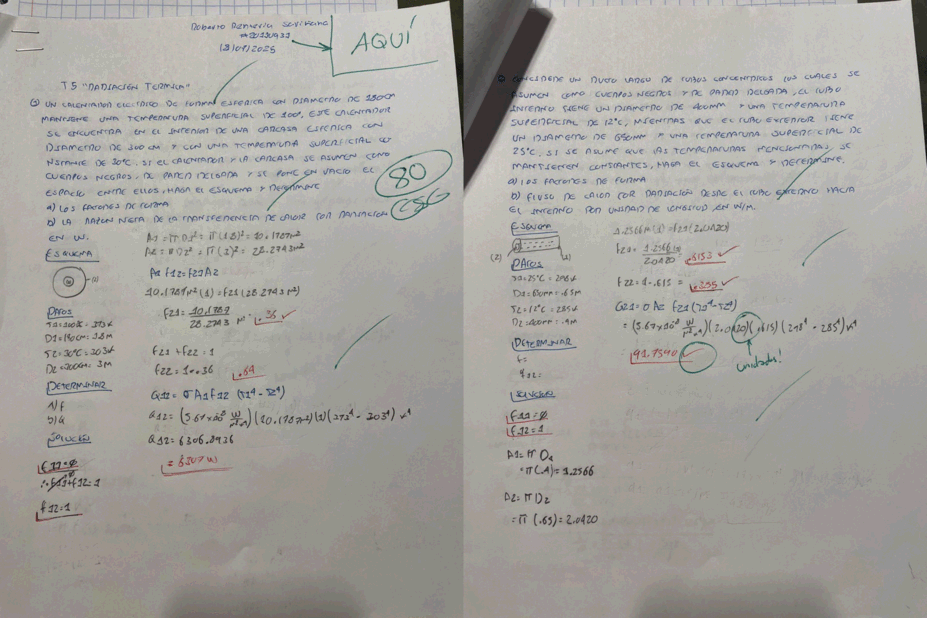 12/09/2025
AQUÍ
T5 "RADIACIÓN TERMICA"
UN CALENTADOR ELECTRICO DE FORMA ESFERICA CON DIAMETRO DE 180CM
MANTIENE UNA TEMPERATURA SUPERFICIAL DE 100°, ESTE CALENTADOR
SE ENCUENTRA EN EL INTERIOR DE UNA CARCASA ESFERICA CON
DIAMETRO DE 300 CM Y CON UNA TEMPERATURA SUPERFICIAL CO
NSTANTE DE 30°C. SI EL CALENTADOR Y LA CARCASA SE ASUMEN COMO
CUERPOS NEGROS, DE PARED DELGADA Y SE PONE EN VACIO EL
ESPACIO ENTRE ELLOS, HAGA EL ESQUEMA Y DETERMINE
80
a) LOS FACTORES DE FORMA
b) LA RAZON NETA DE LA TRANSFERENCIA DE CALOR POR RADIACION
EN W.
ESQUEMA
(2)
DATOS
T1=100°C = 373K
D1=180CM= 1.8M
T2= 30°C = 303K
D2=300CM= 3M
DETERMINAR
a) f
b) Q
SOLUCION
f11=0
∴ f11+f12=1
f12=1
A1=πD1²= π(1.8)²= 10.1787m²
A2= πD2²= π(3)²= 28.2743m²
A1 f12= f21 A2
10.1787m²(1)= f21(28.2743m²)
f21= 10.1787
28.2743 M² = .36
f21+f22=1
f22=1-.36 .64
Q12= σ A1 f12 (T1⁴-T2⁴)
Q12= (5.67x10⁻⁸ W/m²·k⁴)(10.1787m²)(1)(373⁴-303⁴)k⁴
Q12=6306.8936
=6307 W
CONSIDERE UN DUCTO LARGO DE TUBOS CONCENTRICOS LOS CUALES SE
ASUMEN COMO CUERPOS NEGROS Y DE PARED DELGADA, EL TUBO
INTERNO TIENE UN DIAMETRO DE 400MM Y UNA TEMPERATURA
SUPERFICIAL DE 12°C, MIENTRAS QUE EL TUBO EXTERIOR TIENE
UN DIAMETRO DE 650MM Y UNA TEMPERATURA SUPERFICIAL DE
25°C, SI SE ASUME QUE LAS TEMPERATURAS MENCIONADAS SE
MANTIENEN CONSTANTES, HAGA EL ESQUEMA Y DETERMINE.
a) LOS FACTORES DE FORMA
b) FLUJO DE CALOR POR RADIACION DESDE EL TUBO EXTERNO HACIA
EL INTERNO POR UNIDAD DE LONGITUD, EN W/M.
ESQUEMA
(2) (1)
DATOS
T1=25°C = 298K
D1=650MM=.65M
T2=12°C= 285K
D2=400MM= .4M
DETERMINAR
f=
q12=
SOLUCION
f11=0
f12=1
A1=πD1
=π(.4)=1.2566
A2=πD2
=π(.65)=2.0420
1.2566M(1)=f21(2.0420)
f21= 1.2566
2.0420 = .6153
f22=1-.615 =
Q21=σ A2 f21(T1⁴-T2⁴)
=(5.67x10⁻⁸ W/m²·k⁴)(2.0420)(.615)(298⁴-285⁴)k⁴
91.7540
unidades!